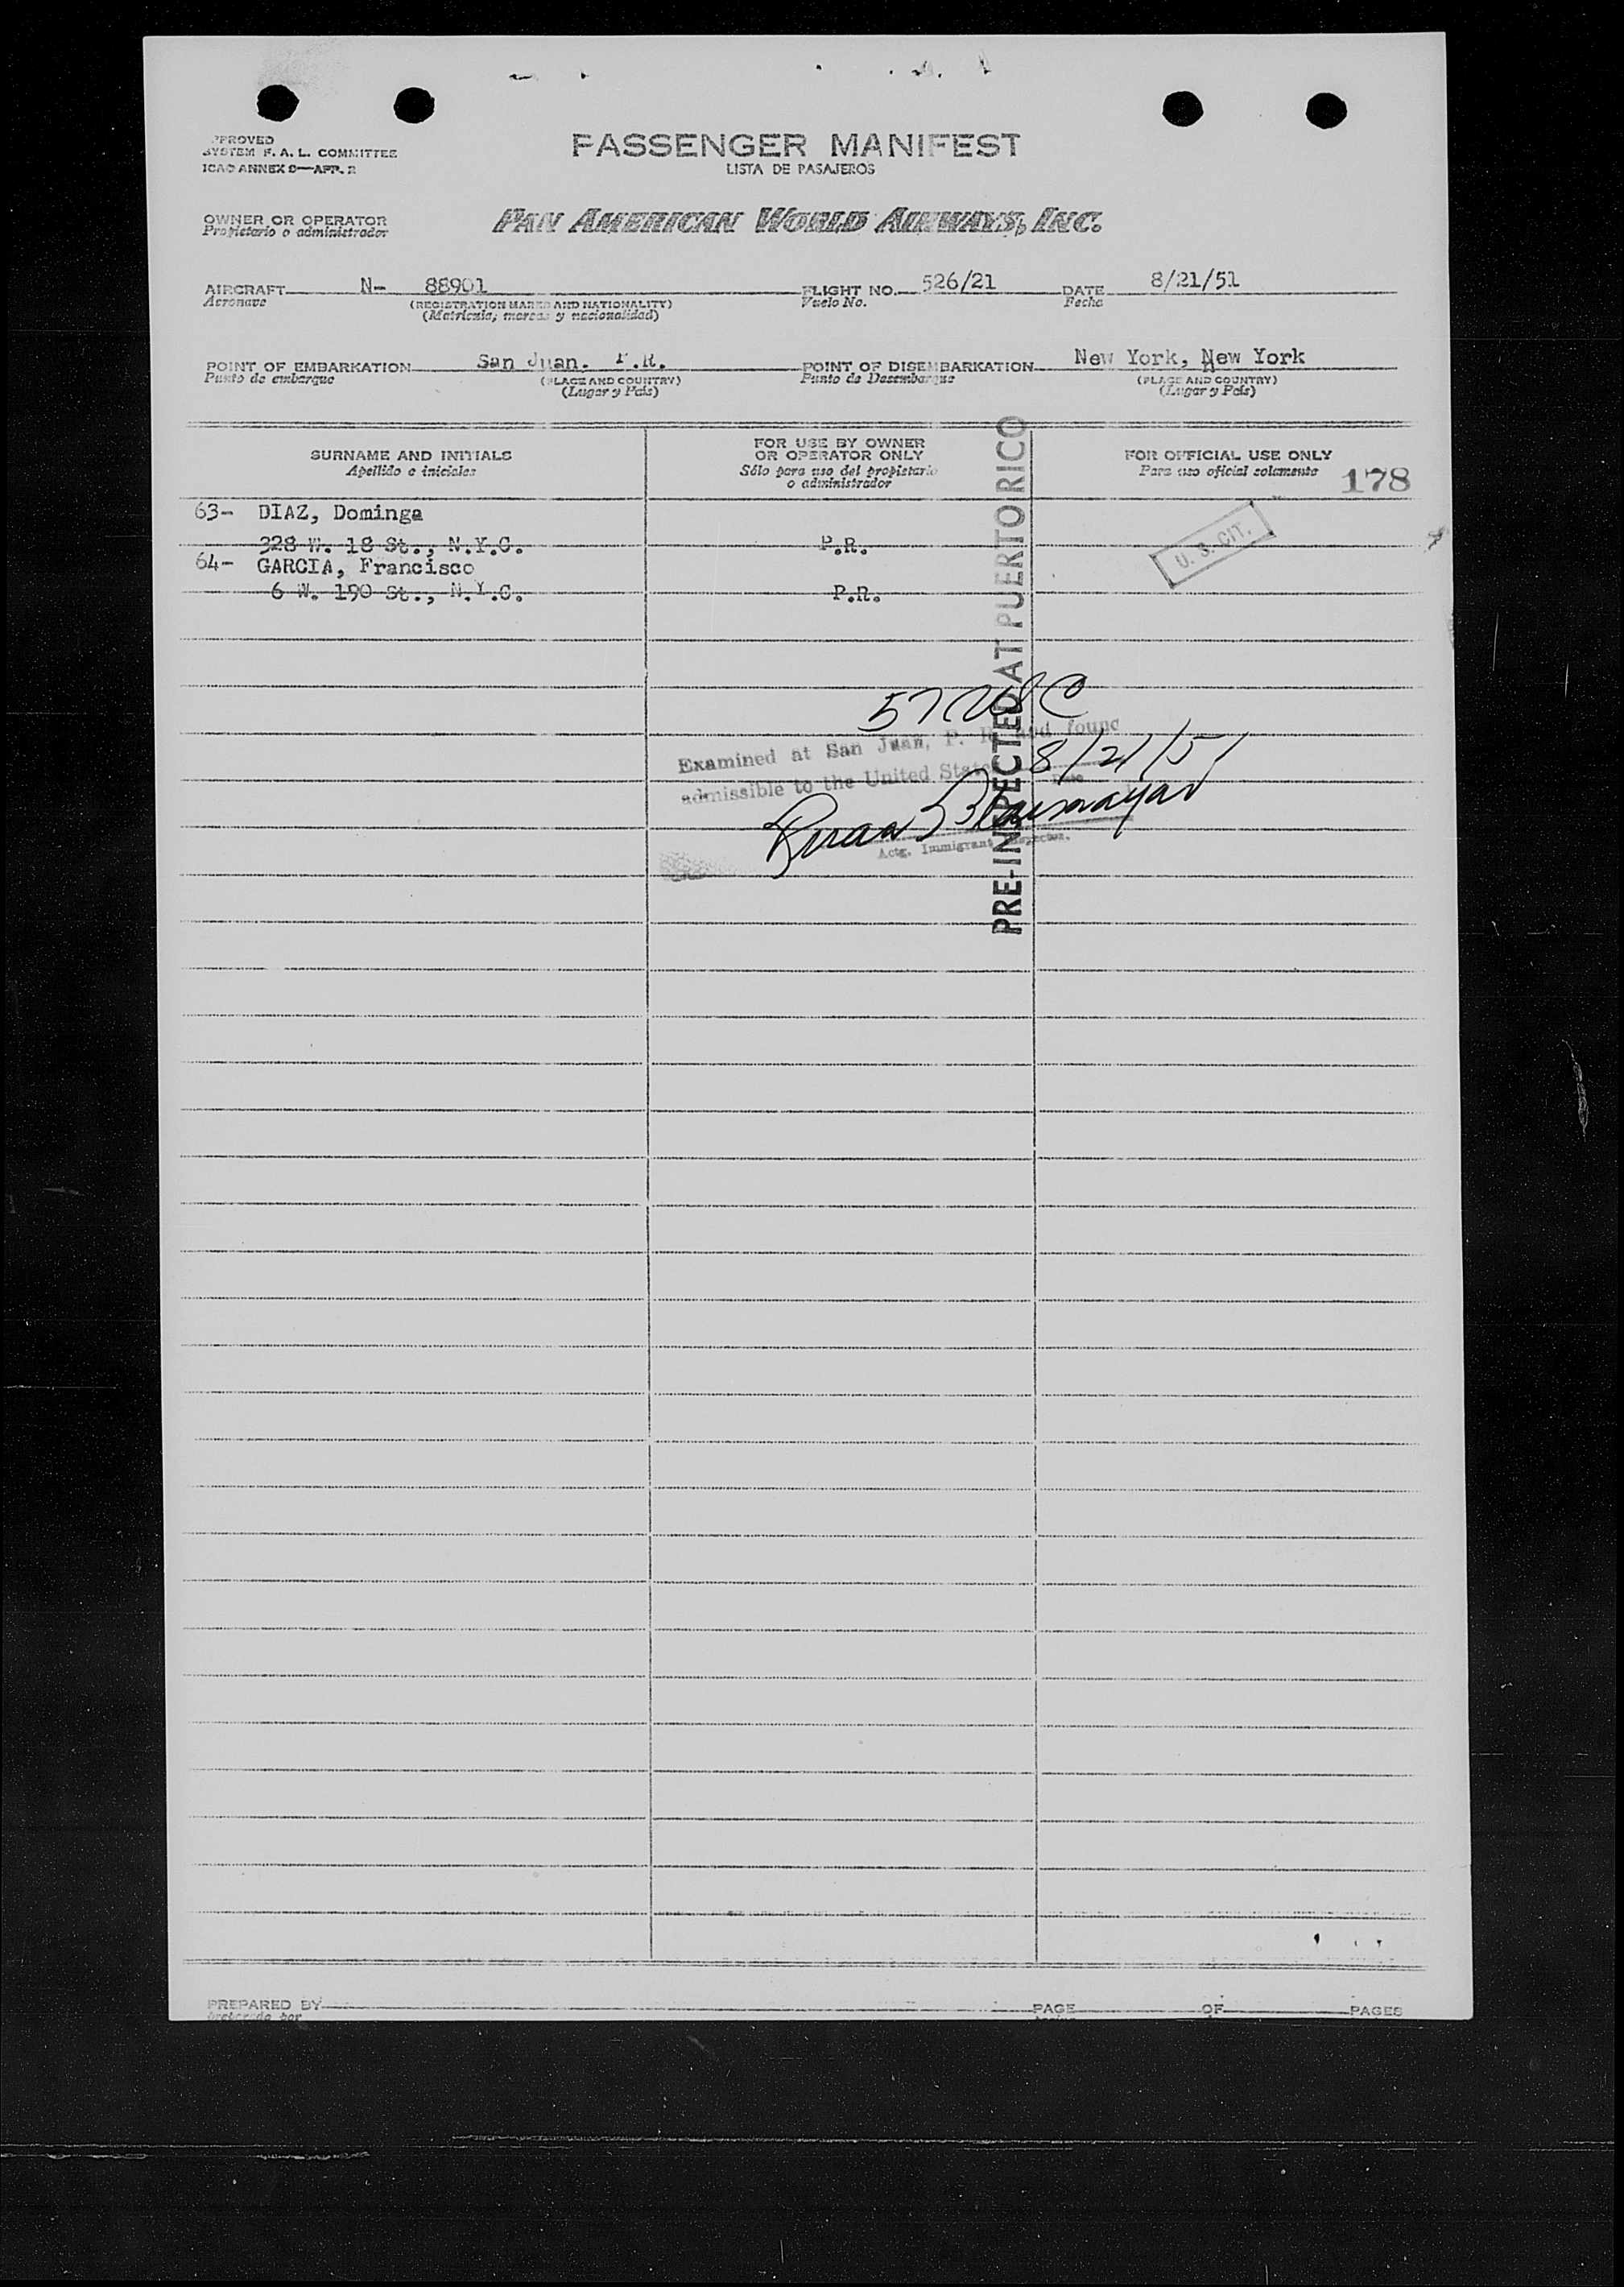 PASSENGER MANIFEST
LISTA DE PASAJEROS
SYSTEM F. A. L. COMMITTEE
ICAO ANNEX 9—APP. 2
OWNER OR OPERATOR
Propietario o administrador
PAN AMERICAN WORLD AIRWAYS, INC.
AIRCRAFT N- 88901 FLIGHT NO. 526/21 DATE 8/21/51
Aeronave (REGISTRATION MARKS AND NATIONALITY) Vuelo No. Fecha
(Matrícula, marcas y nacionalidad)
POINT OF EMBARKATION San Juan. P.R. POINT OF DISEMBARKATION New York, New York
Punto de embarque (PLACE AND COUNTRY) Punto de Desembarque (PLACE AND COUNTRY)
(Lugar y País) (Lugar y País)
SURNAME AND INITIALS FOR USE BY OWNER OR OPERATOR ONLY FOR OFFICIAL USE ONLY
Apellido e iniciales Sólo para uso del propietario o administrador Para uso oficial solamente
178
63- DIAZ, Dominga
328 W. 18 St., N.Y.C. P.R.
U. S. CIT.
64- GARCIA, Francisco
6 W. 190 St., N.Y.C. P.R.
PRE-INSPECTED AT PUERTO RICO
57 USC
Examined at San Juan, P. R. and found
admissible to the United States 8/21/51
Date
Actg. Immigrant Inspector.
PREPARED BY PAGE OF PAGES